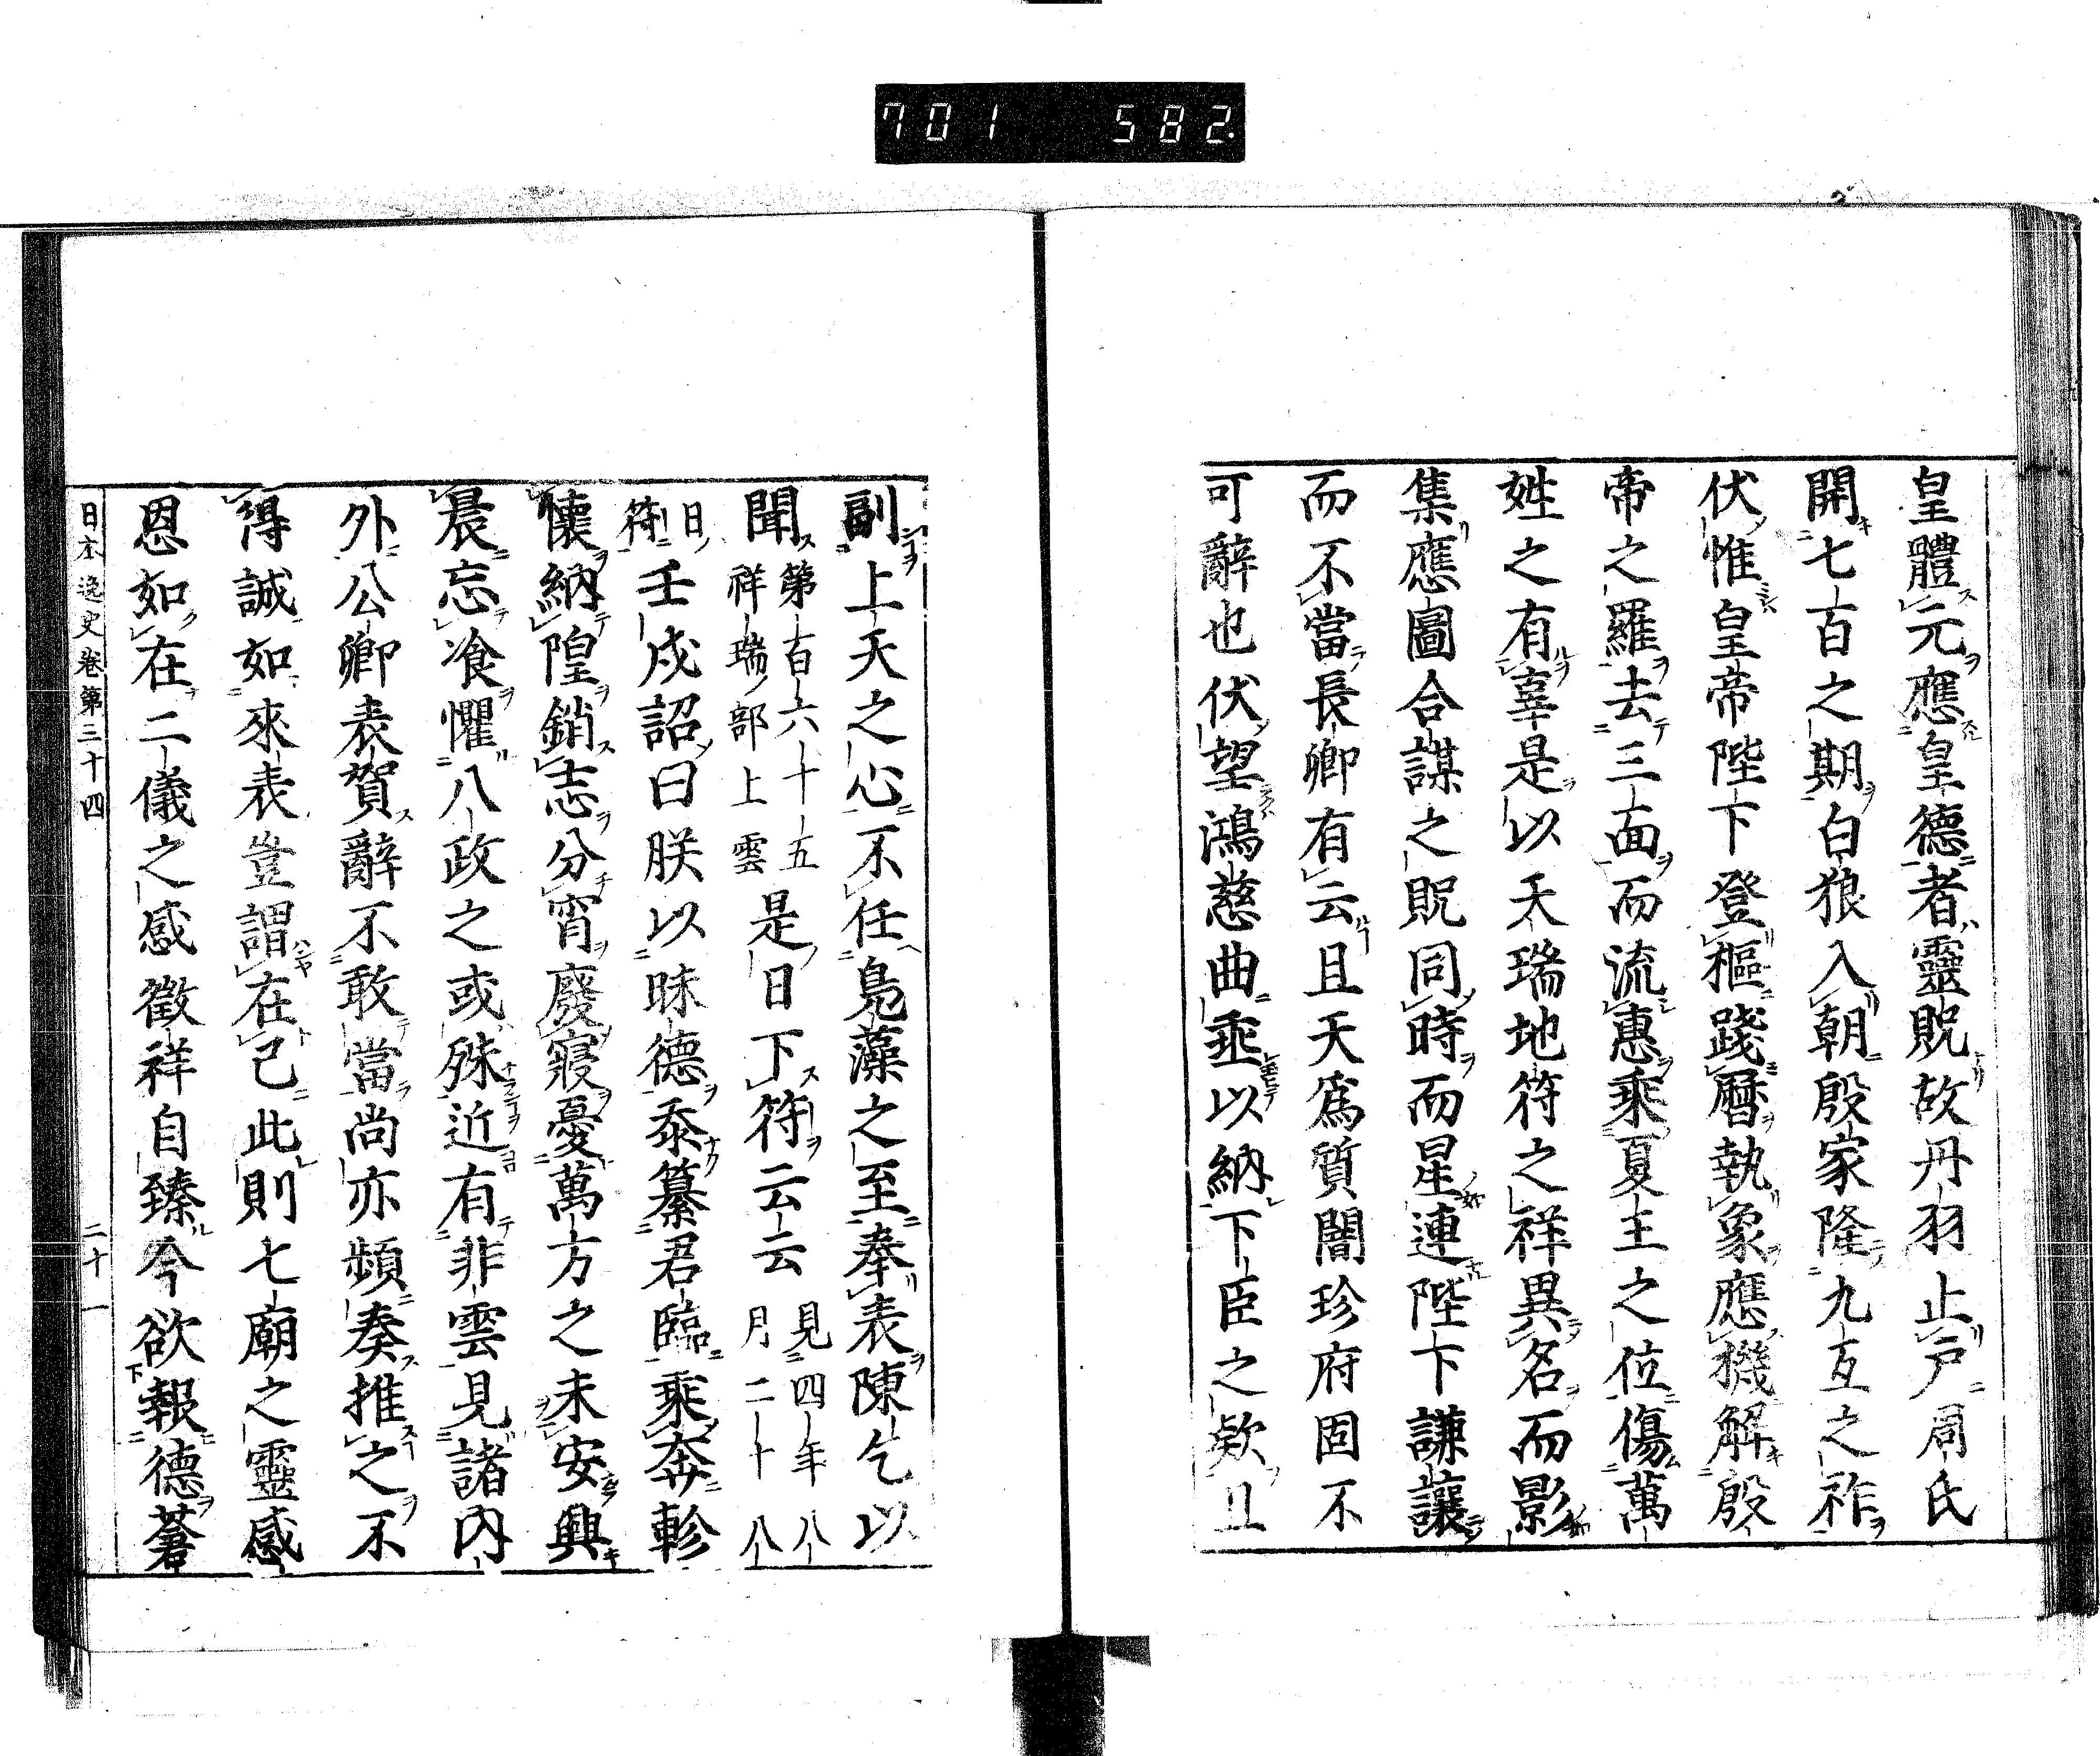 701 582.
皇體元應皇德者靈貺故丹羽止戸周氏
開七百之期白狼入朝殷家隆九亙之祚
伏惟皇帝陛下登樞踐曆執象應機解殷
帝之羅去三面而流惠乘夏王之位傷萬
姓之有辜是以天瑞地符之祥異名而影
集應圖合謀之貺同時而星連陛下謙讓
而不當長卿有云且天爲質闇珍府固不
可辭也伏望鴻慈曲垂以納下臣之欵且
副上天之心不任鳧藻之至奉表陳乞以
聞第百六十五祥瑞部上雲是日下符云云見四年八月二十八
日符壬戌詔曰朕以昧德忝纂君臨乘奔軫
懷納隍銷志分宵廢寢憂萬方之未安興
晨忘飡懼八政之或殊近有非雲見諸内
外公卿表賀辭不敢當尚亦頻奏推之不
得誠如來表豈謂在己此則七廟之靈感
恩如在二儀之感徵祥自臻今欲報德蒼
日本逸史卷第三十四 二十一